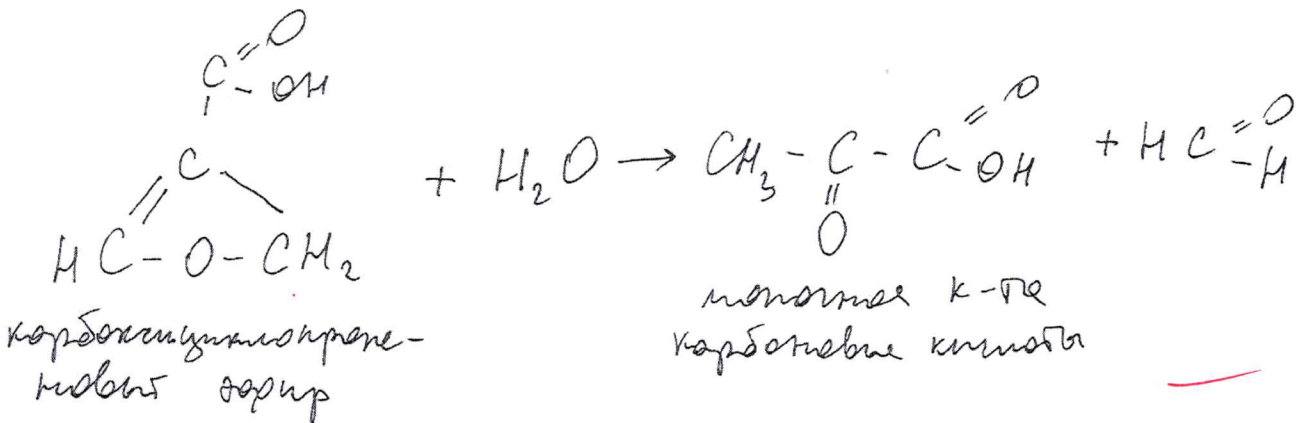 C=O
C-OH
HC-O-CH₂ + H₂O → CH₃-C-C=O + HC=O
-OH
-H
O
карбоксициклопропе-
новый эфир
молочная к-та
карбоновые кислоты